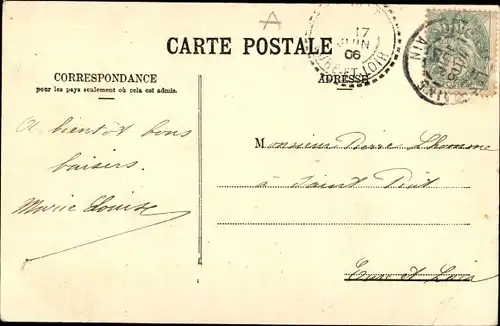 A
CARTE POSTALE
17
JUIN
06
EURE ET LOIR
AIN
CORRESPONDANCE
pour les pays seulement où cela est admis.
ADRESSE
A bientôt bons
baisers.
Marie Louise
Monsieur Pierre Lhomme
à Saint Piat
Eure et Loir